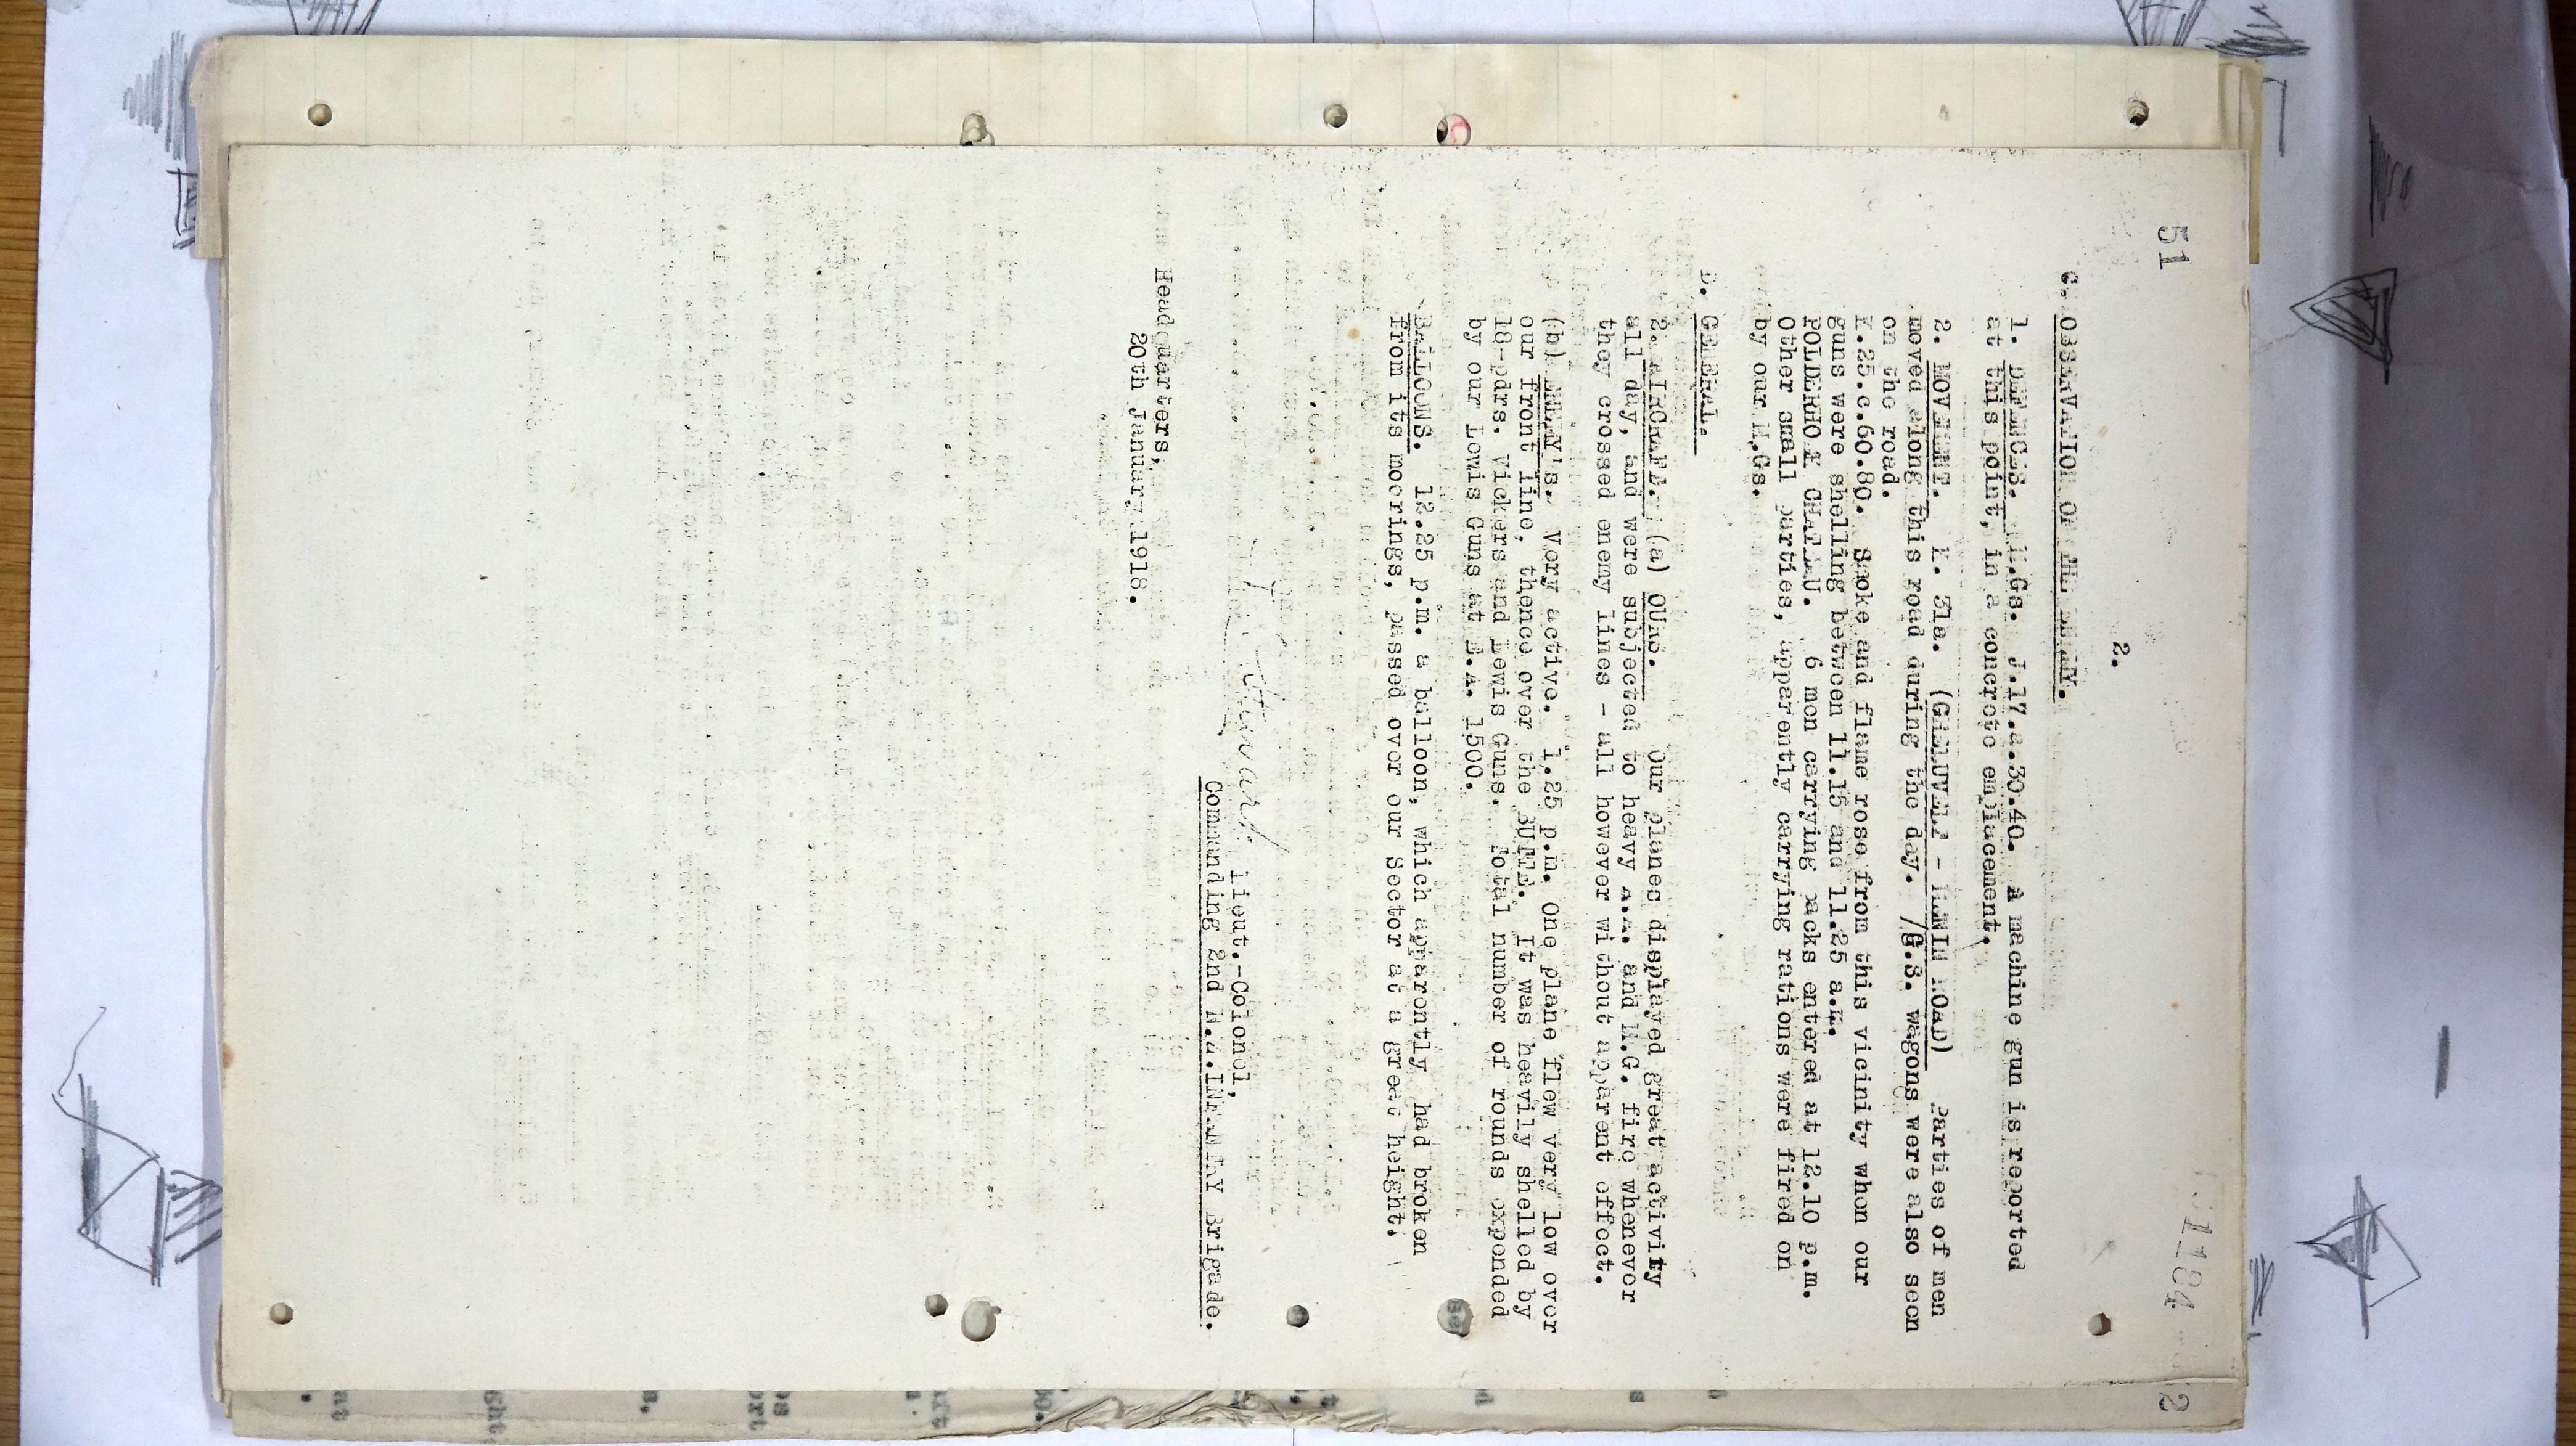 51
1184
2.
C. OBSERVATION OF THE ENEMY.
1. DEFENCES. M.Gs. J.17.a.30.40. A machine gun is reported
at this point, in a concrete emplacement.
2. MOVEMENT. K. 31a. (GHELUVELT - MENIN ROAD) Parties of men
moved along this road during the day. /G.S. wagons were also seen
on the road.
K.25.c.60.80. Smoke and flame rose from this vicinity when our
guns were shelling between 11.15 and 11.25 a.m.
POLDERHOEK CHATEAU. 6 men carrying packs entered at 12.10 p.m.
Other small parties, apparently carrying rations were fired on
by our M.Gs.
D. GENERAL.
2. AIRCRAFT. (a) OURS. Our planes displayed great activity
all day, and were subjected to heavy A.A. and M.G. fire whenever
they crossed enemy lines - all however without apparent effect.
(b) ENEMY's. Very active. 1.25 p.m. One plane flew very low over
our front line, thence over the BUTTE. It was heavily shelled by
18-pdrs. Vickers and Lewis Guns. Total number of rounds expended
by our Lewis Guns at E.A. 1500.
BALLOONS. 12.25 p.m. a balloon, which apparently had broken
from its moorings, passed over our Sector at a great height.
Stewart lieut.-Colonel,
Commanding 2nd N.Z.INFANTRY Brigade.
Headquarters,
20th January 1918.